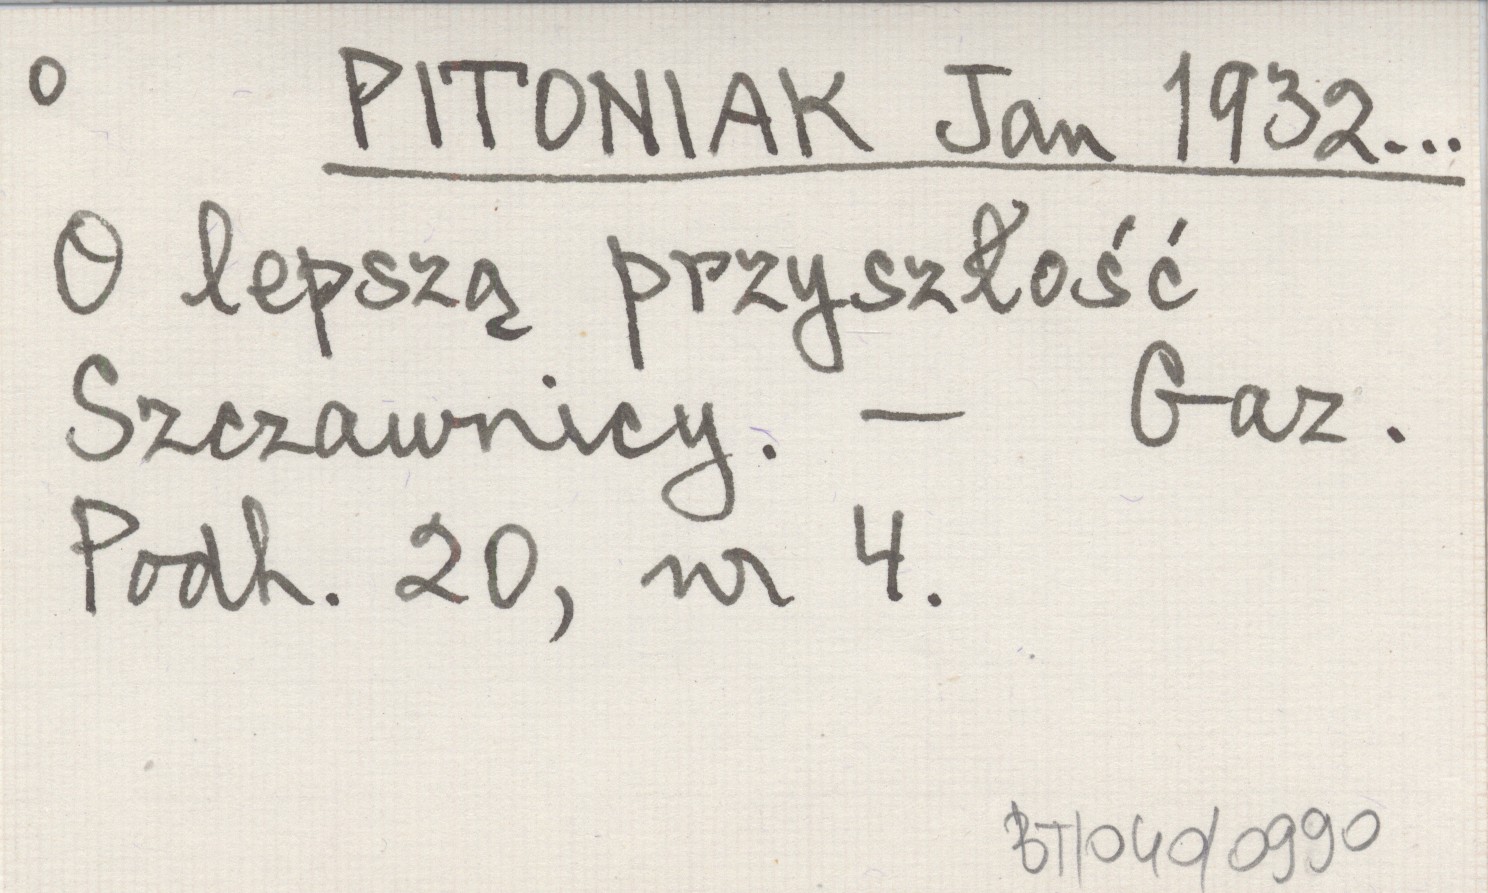 o PITONIAK Jan 1932...
O lepszą przyszłość
Szczawnicy. — Gaz.
Podh. 20, nr 4.
BT/040/0990